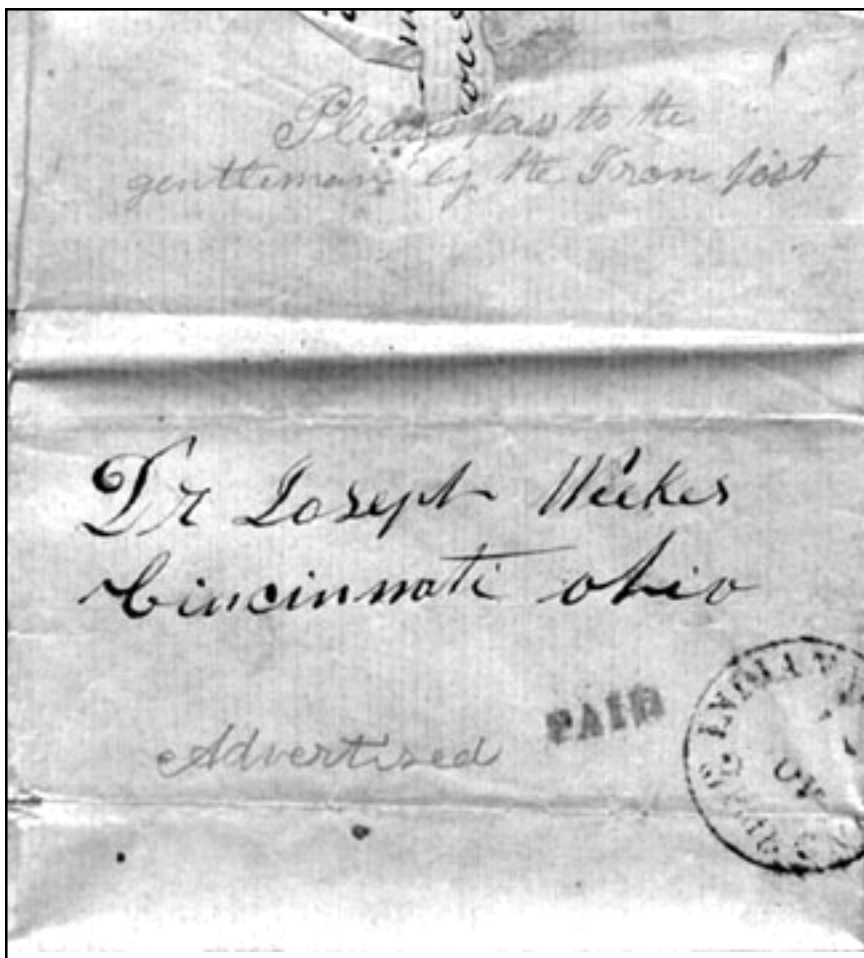 Please pass to the
gentleman by the Iron post
Dr Joseph Weekes
Cincinnati Ohio
PAID
Advertised